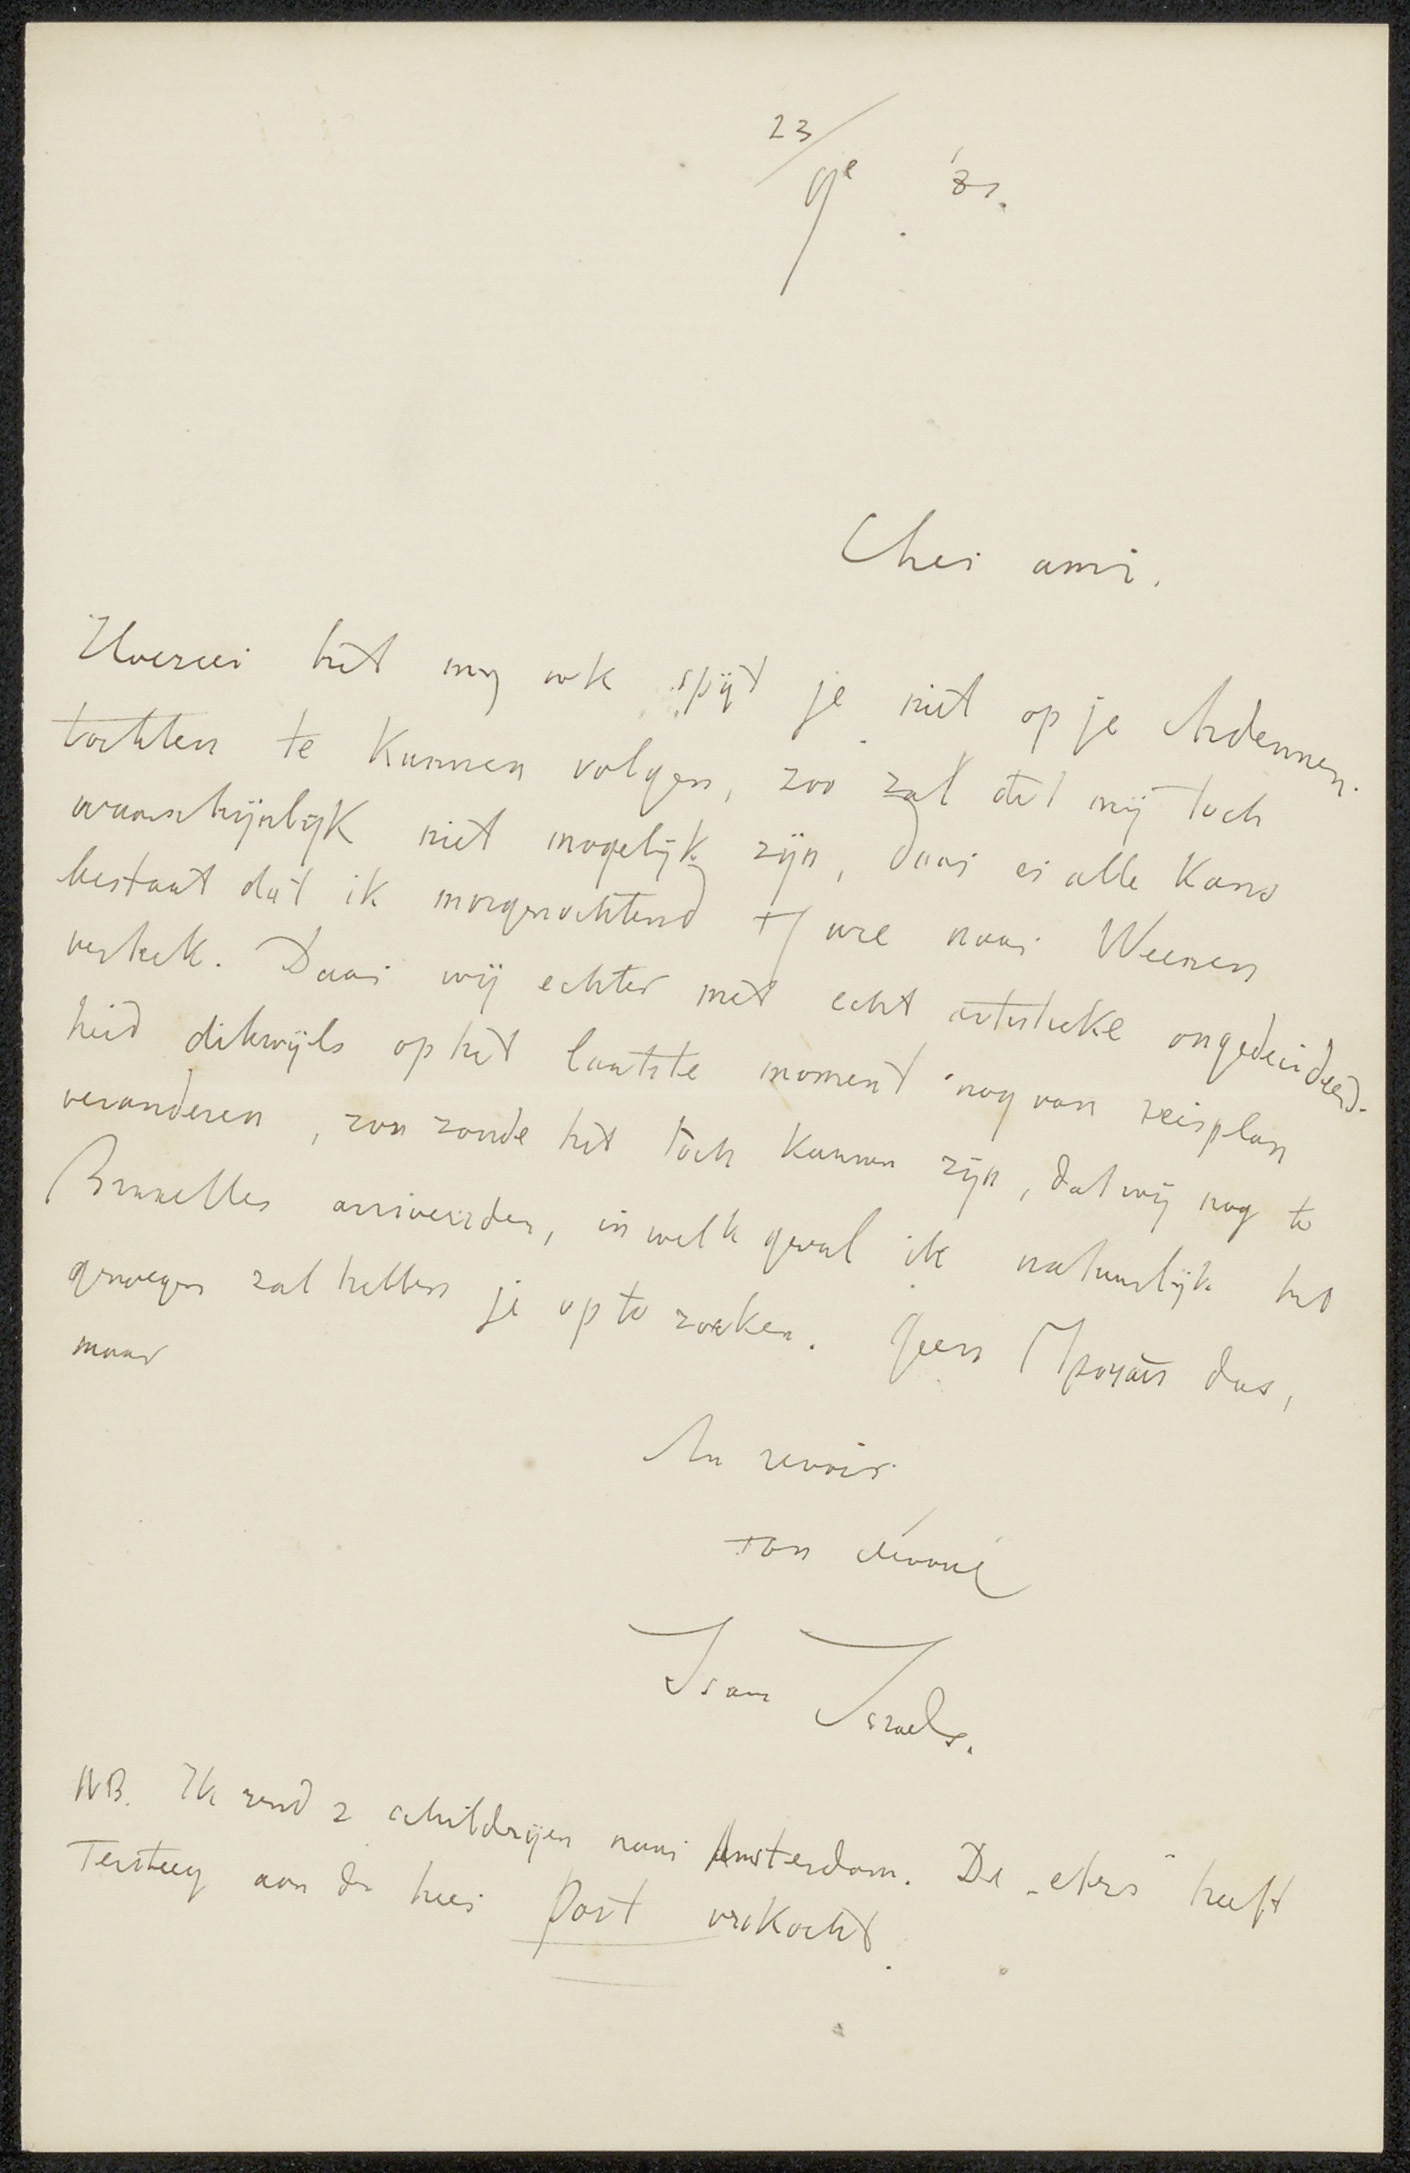 23/9e '81.
Cher ami.
Hoezeer het my ook spijt je niet op je Ardennen-
tochten te kunnen volgen, zoo zal dit mij toch
waarschijnlijk niet mogelijk zijn, daar er alle kans
bestaat dat ik morgenochtend 7 ure naar Weenen
vertrek. Daar wij echter met echt artistieke ongedecideerd-
heid dikwijls op het laatste moment nog van reisplan
veranderen, zou zoude het toch kunnen zijn, dat wij nog te
Bruxelles arriveerden, in welk geval ik natuurlijk het
genoegen zal hebben je op te zoeken. Geen dus,
maar
Au revoir
ton dévoué
Isaac Israels.
NB. Ik zend 2 schilderijen naar Amsterdam. De heeft
Tersteeg aan den heer Post verkocht.